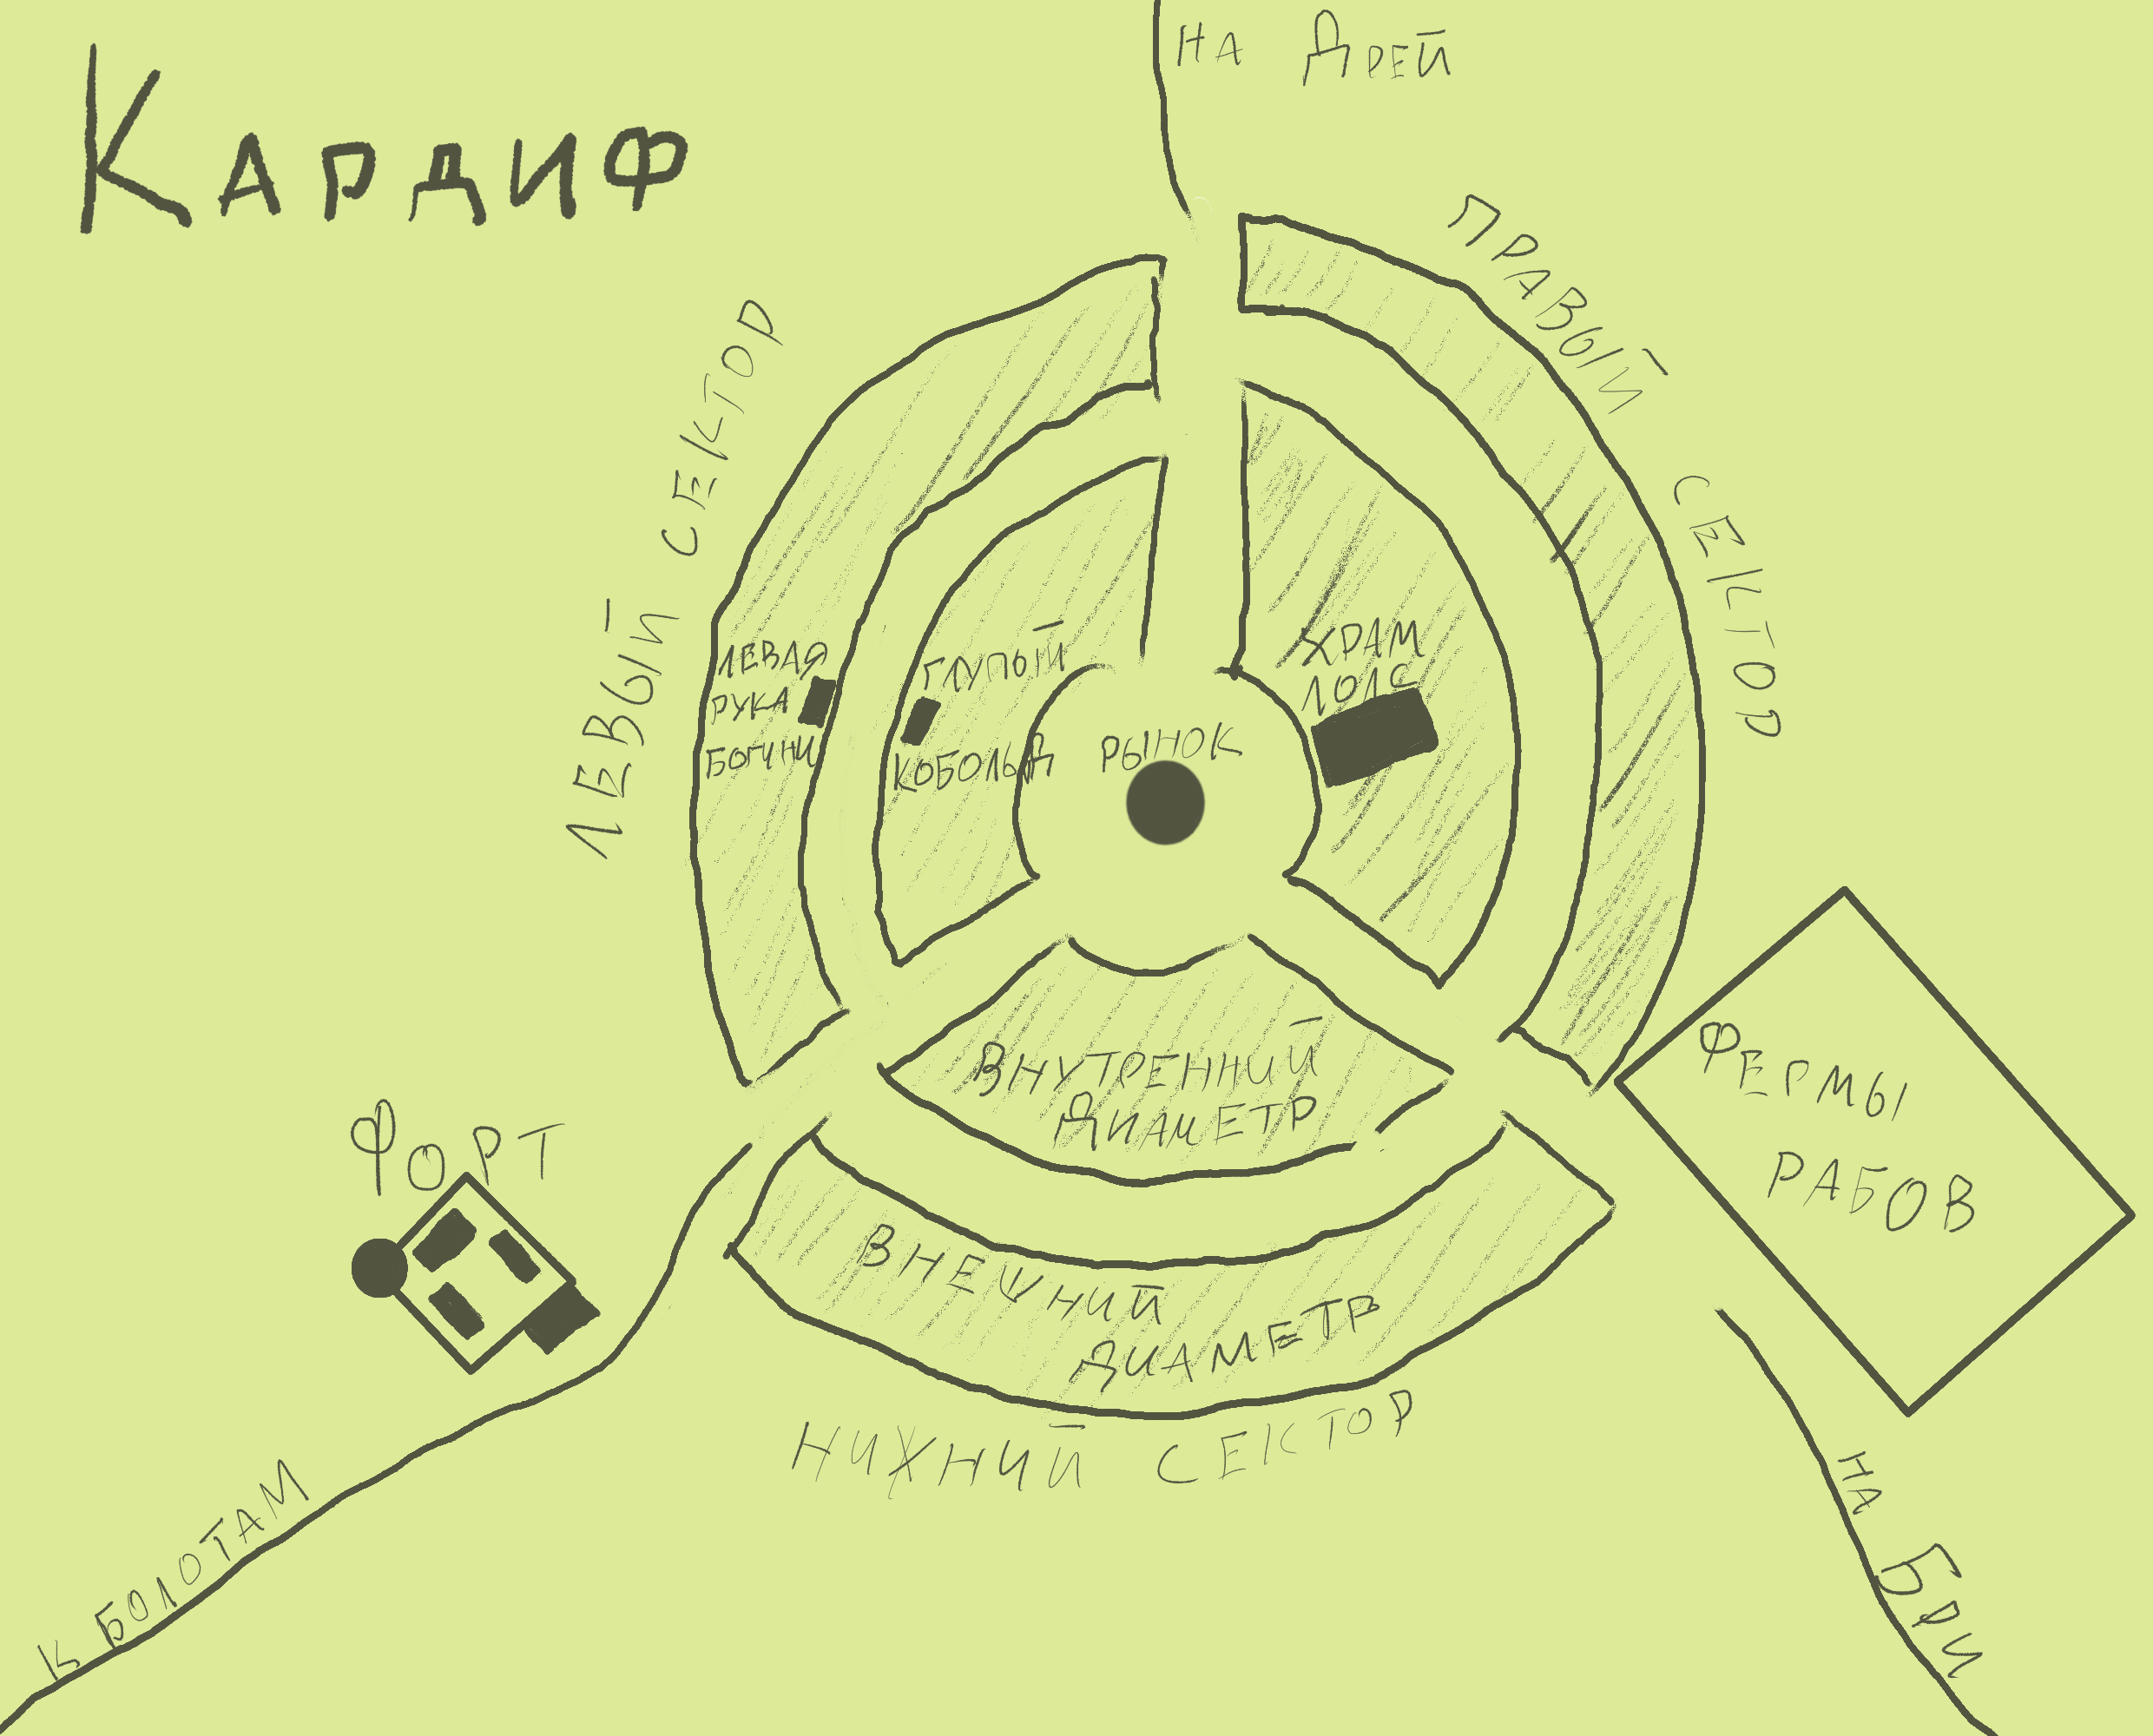 Кардиф
на Дрей
правый сектор
левый сектор
левая
рука
богини
глупый
кобольд
рынок
храм
лолс
внутренний
диаметр
внешний
диаметр
нижний сектор
Форт
Фермы
рабов
к болотам
на Бри